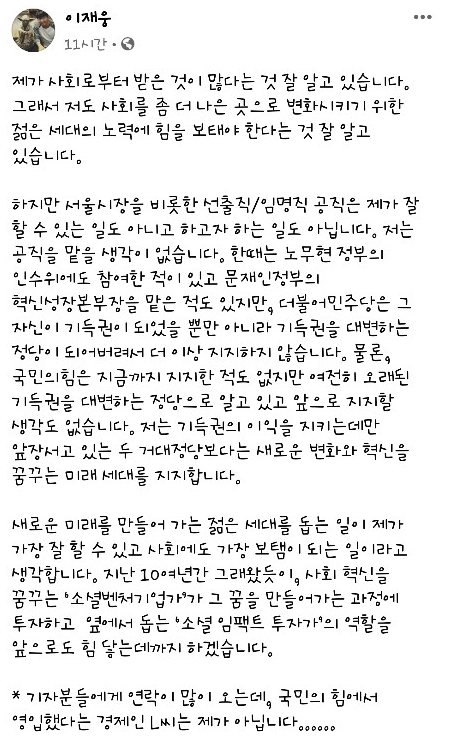 이재웅
11시간 ·
제가 사회로부터 받은 것이 많다는 것 잘 알고 있습니다.
그래서 저도 사회를 좀 더 나은 곳으로 변화시키기 위한
젊은 세대의 노력에 힘을 보태야 한다는 것 잘 알고
있습니다.
하지만 서울시장을 비롯한 선출직/임명직 공직은 제가 잘
할 수 있는 일도 아니고 하고자 하는 일도 아닙니다. 저는
공직을 맡을 생각이 없습니다. 한때는 노무현 정부의
인수위에도 참여한 적이 있고 문재인정부의
혁신성장본부장을 맡은 적도 있지만, 더불어민주당은 그
자신이 기득권이 되었을 뿐만 아니라 기득권을 대변하는
정당이 되어버려서 더 이상 지지하지 않습니다. 물론,
국민의힘은 지금까지 지지한 적도 없지만 여전히 오래된
기득권을 대변하는 정당으로 알고 있고 앞으로 지지할
생각도 없습니다. 저는 기득권의 이익을 지키는데만
앞장서고 있는 두 거대정당보다는 새로운 변화와 혁신을
꿈꾸는 미래 세대를 지지합니다.
새로운 미래를 만들어 가는 젊은 세대를 돕는 일이 제가
가장 잘 할 수 있고 사회에도 가장 보탬이 되는 일이라고
생각합니다. 지난 10여년간 그래왔듯이, 사회 혁신을
꿈꾸는 '소셜벤처기업가'가 그 꿈을 만들어가는 과정에
투자하고 옆에서 돕는 '소셜 임팩트 투자가'의 역할을
앞으로도 힘 닿는데까지 하겠습니다.
* 기자분들에게 연락이 많이 오는데, 국민의 힘에서
영입했다는 경제인 L씨는 제가 아닙니다......